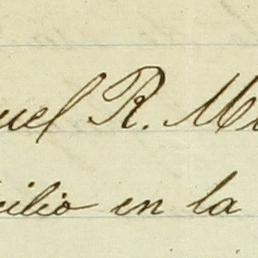 uel R. M
cilio en la